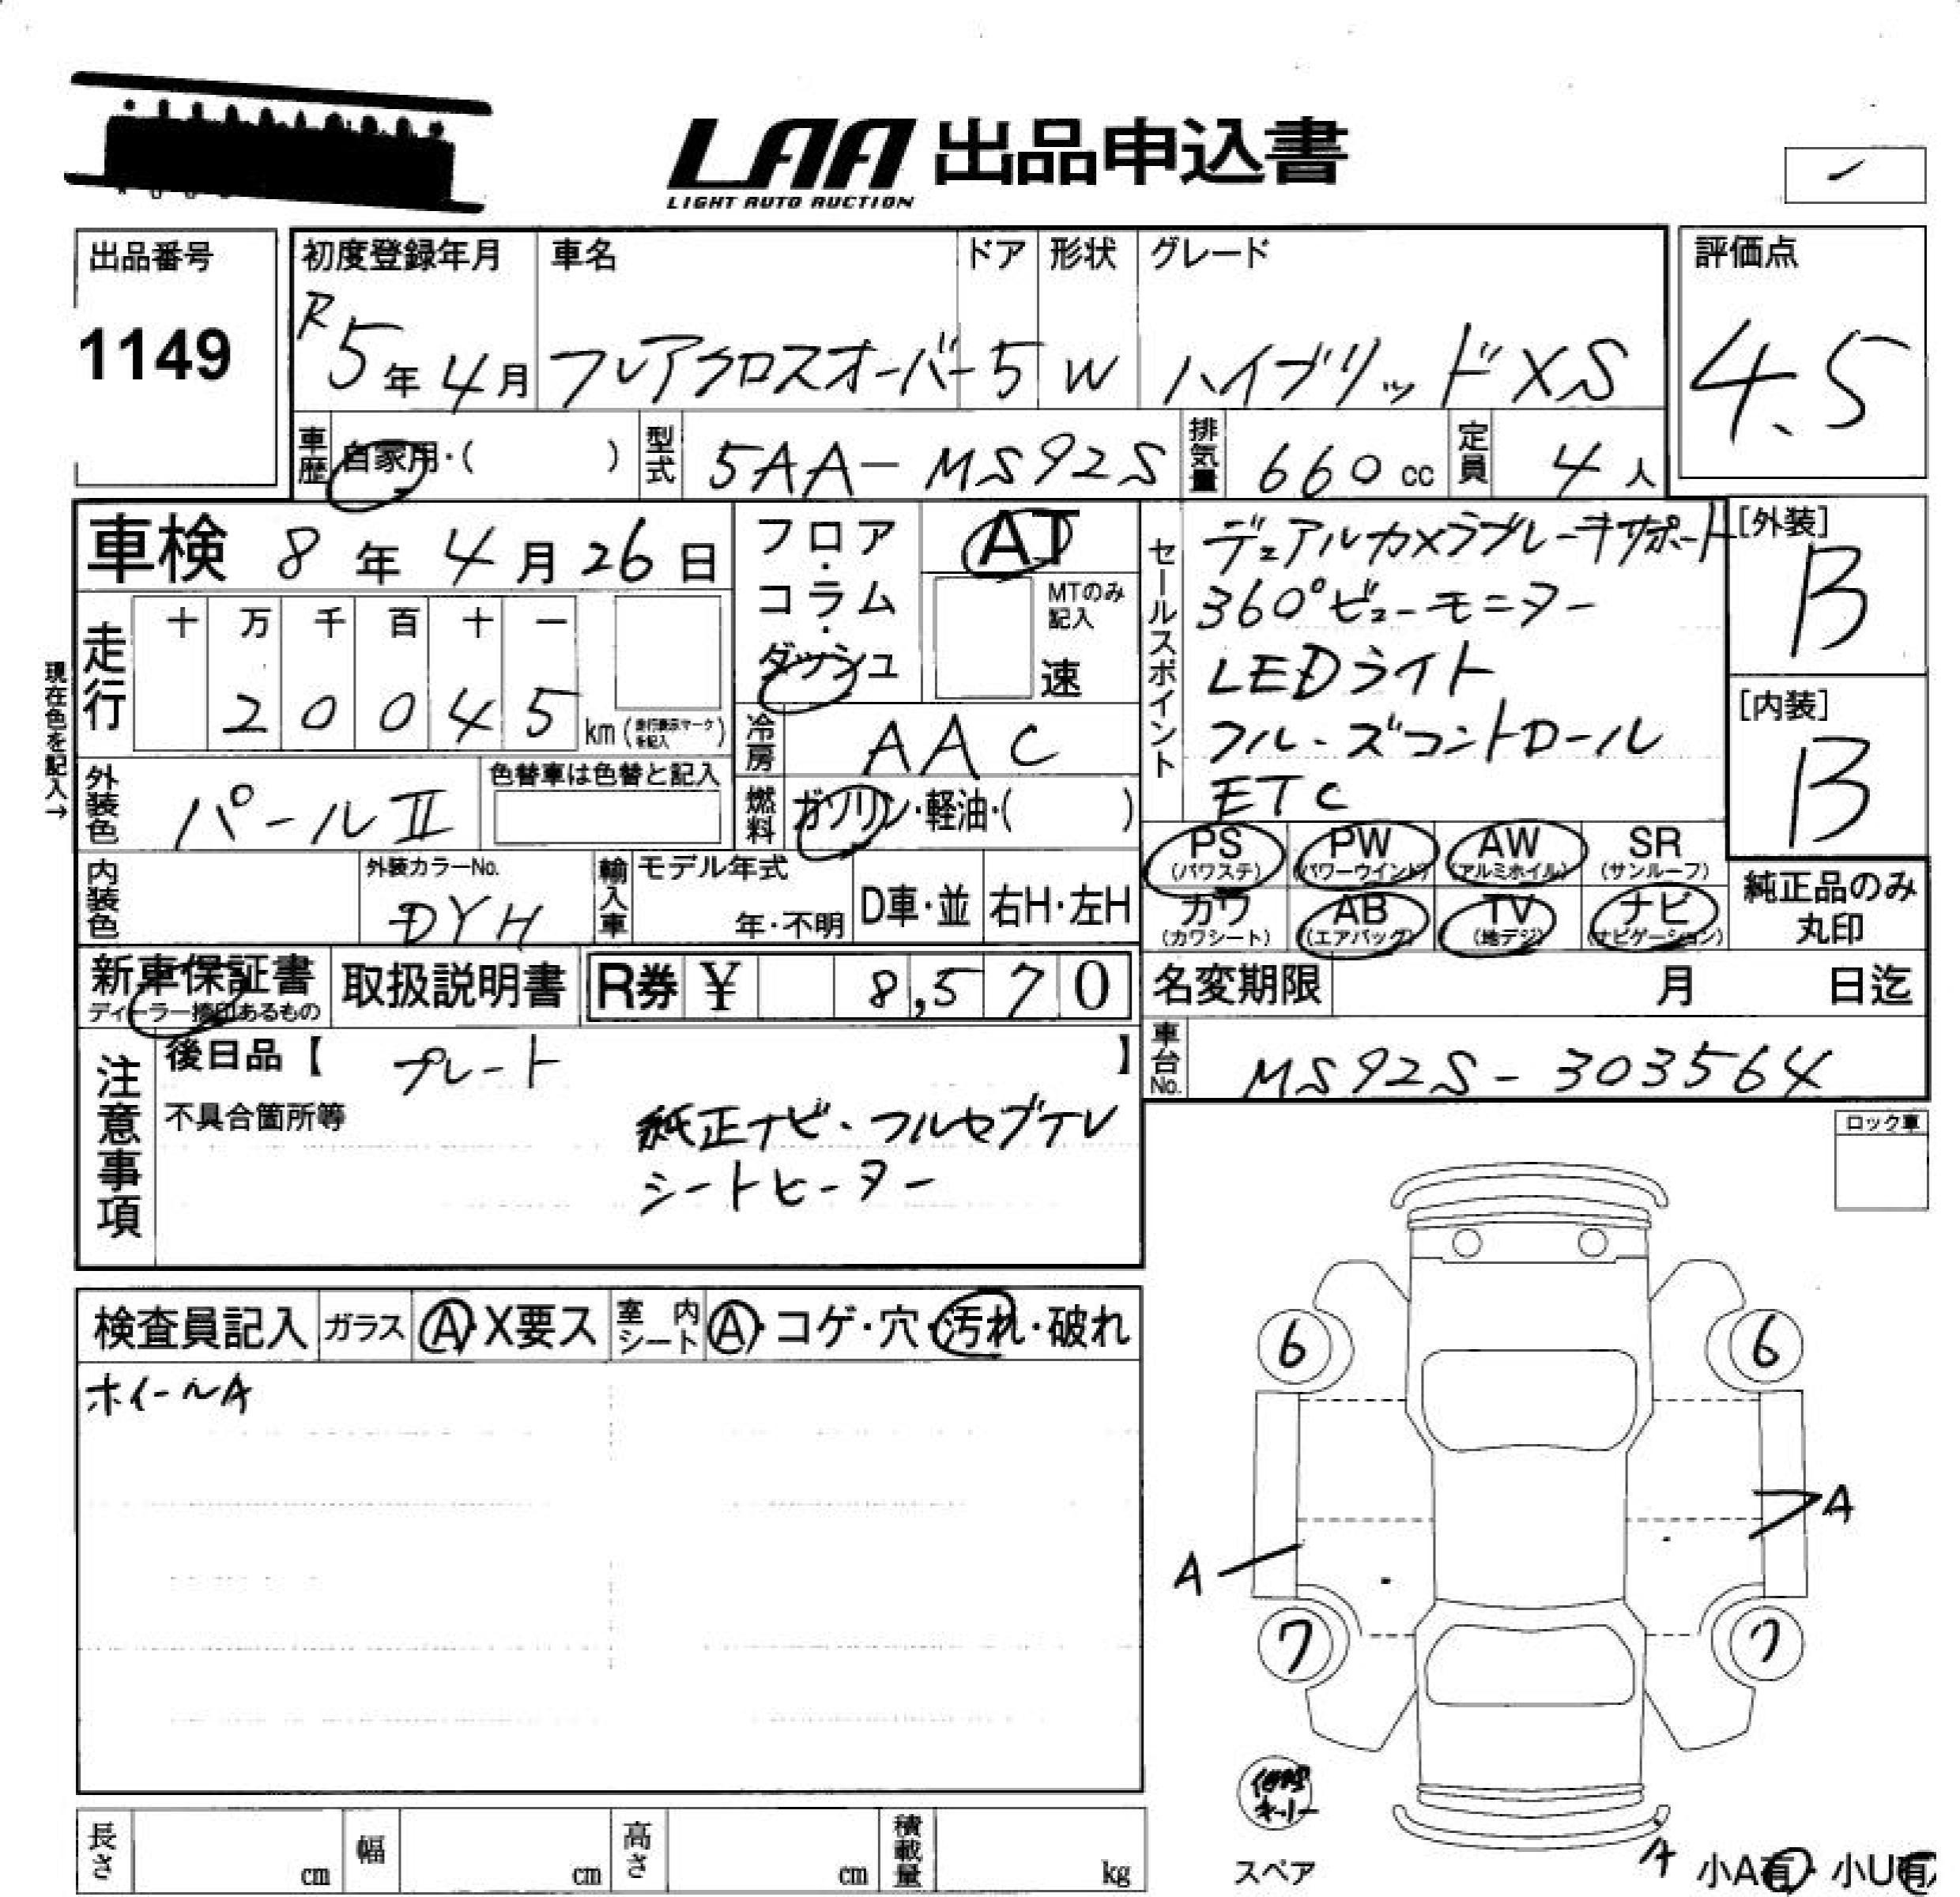 LAA 出品申込書
LIGHT AUTO AUCTION
出品番号
1149
初度登録年月 車名 ドア 形状 グレード
R5年4月 フレアクロスオーバー 5 W ハイブリッドXS
評価点
4.5
車歴 自家用・( ) 型式 5AA-MS92S 排気量 660cc 定員 4人
車検 8年4月26日
フロア・コラム・ダッシュ
AT
MTのみ記入
速
セールスポイント
デュアルカメラブレーキサポート
360°ビューモニター
LEDライト
クルーズコントロール
ETC
[外装]
B
[内装]
B
現在色を記入→
走行 十 万 千 百 十 一
20045 km(走行表示マークを記入)
冷房 AAC
外装色 パールII 色替車は色替と記入
燃料 ガソリン・軽油・( )
PS (パワステ) PW (パワーウインド) AW (アルミホイル) SR (サンルーフ)
カワ (カワシート) AB (エアバッグ) TV (地デジ) ナビ (ナビゲーション)
純正品のみ丸印
内装色 外装カラーNo. DYH 輸入車 モデル年式 年・不明 D車・並 右H・左H
新車保証書 ディーラー捺印あるもの 取扱説明書 R券 ¥ 8,570
名変期限 月 日迄
車台No. MS92S-303564
注意事項
後日品【 プレート 】
不具合箇所等
純正ナビ・フルセグTV
シートヒーター
ロック車
検査員記入 ガラス A・X要ス 室内シート A・コゲ・穴・汚れ・破れ
ホイールA
6 6
A
A
7 7
スペア
A
小A有・小U有
長さ cm 幅 cm 高さ cm 積載量 kg